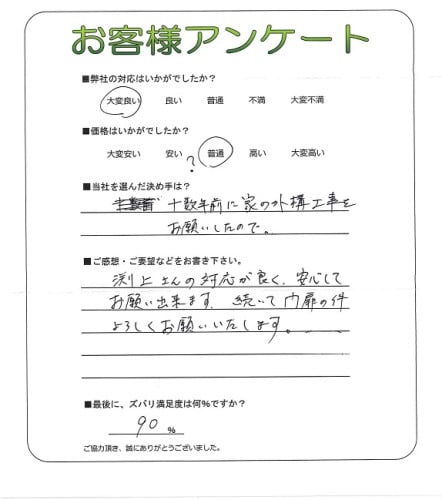 お客様アンケート
■弊社の対応はいかがでしたか?
大変良い 良い 普通 不満 大変不満
■価格はいかがでしたか?
大変安い 安い ? 普通 高い 大変高い
■当社を選んだ決め手は?
十数年前に家の外構工事を
お願いしたので。
■ご感想・ご要望などをお書き下さい。
渕上さんの対応が良く、安心して
お願い出来ます。続いて門扉の件
よろしくお願いいたします。
■最後に、ズバリ満足度は何%ですか?
90 %
ご協力頂き、誠にありがとうございました。